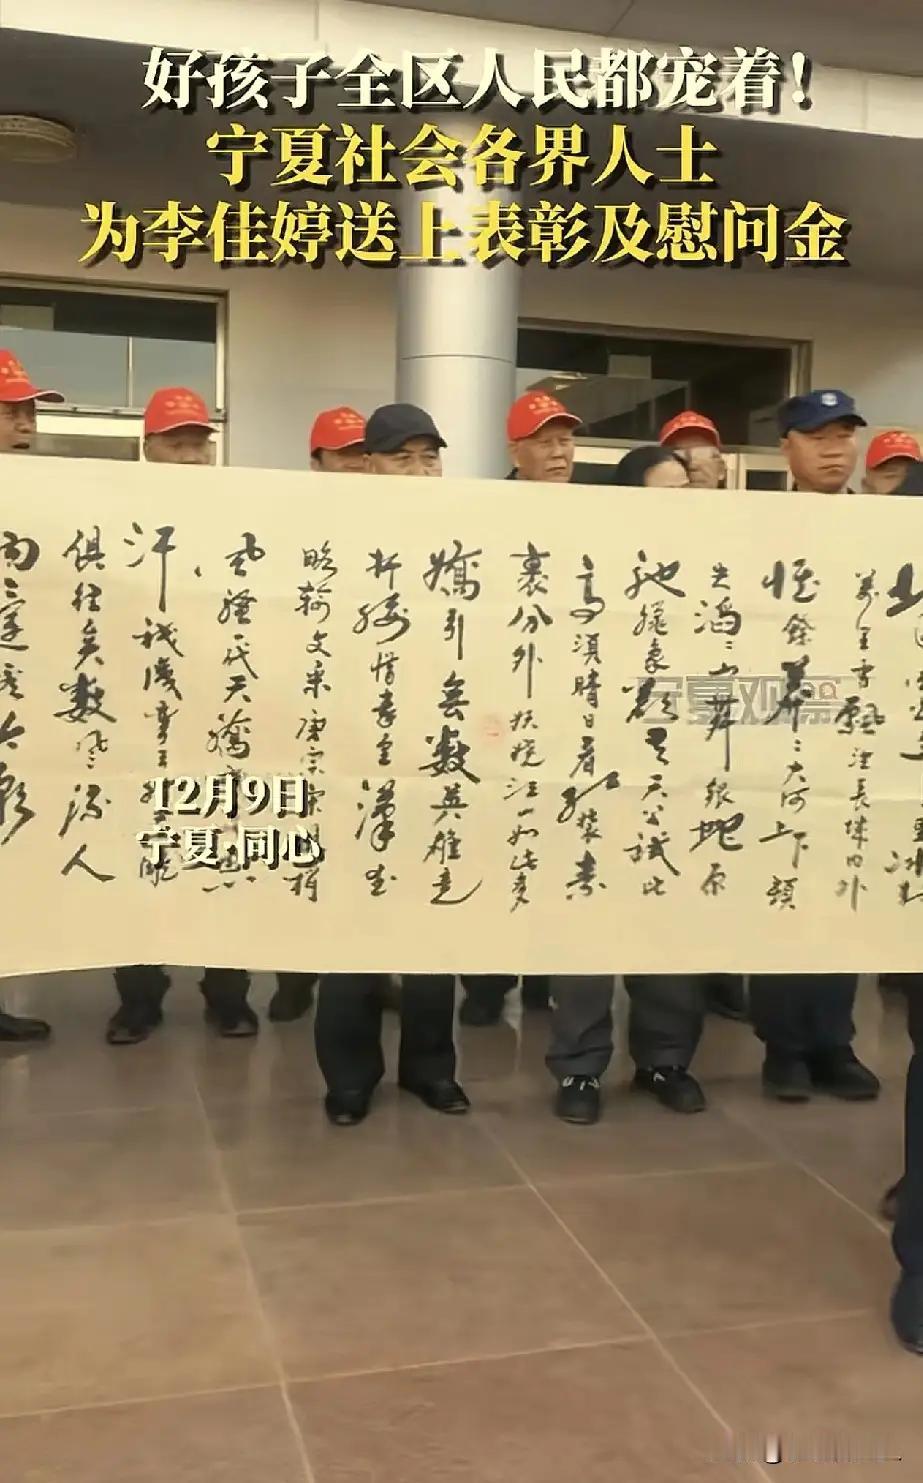 好孩子全区人民都宠着!
宁夏社会各界人士
为李佳婷送上表彰及慰问金
萬里雪飄望長城内外
惟餘莽〻大河上下頓
失滔〻山舞银蛇原
驰蠟象欲与天公試比
高須晴日看红裝素
裹分外妖娆江山如此多
嬌引無數英雄竞
折腰惜秦皇漢武
略輸文采唐宗宋祖稍
风骚一代天驕
汗祇識彎弓射大雕
俱往矣數风流人
物还看今朝
宁夏观察
12月9日
宁夏·同心